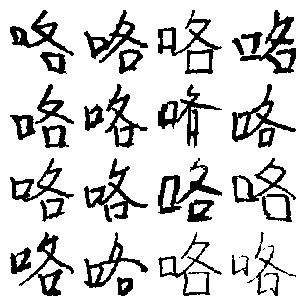 咯咯咯咯
咯咯咯咯
咯咯咯咯
咯咯咯咯